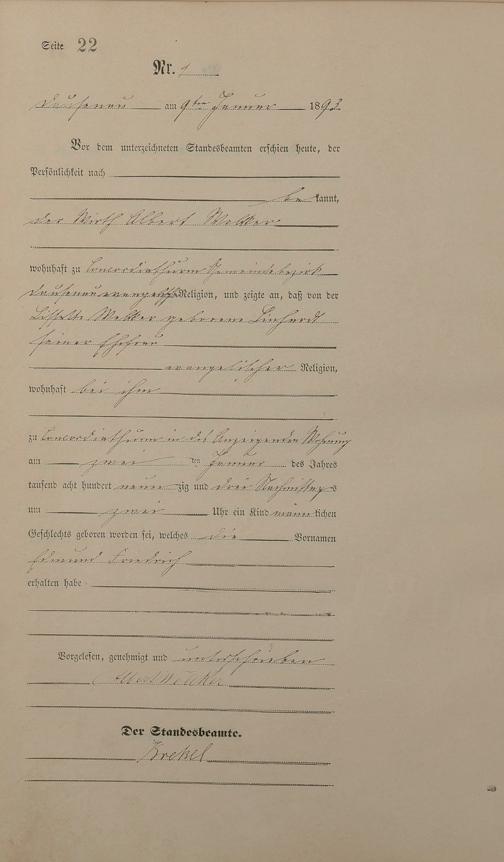 Seite 22
Nr. 1
Dausenau am 9ten Januar 1893
Vor dem unterzeichneten Standesbeamten erschien heute, der
Persönlichkeit nach
be kannt,
der Wirth Albert
wohnhaft zu Concordiathurm Gemeindebezirk
Dausenau evangelisch Religion, und zeigte an, daß von der
geborene
seiner Ehefrau
evangelischer Religion,
wohnhaft bei ihm
zu Concordiathurm in des Anzeigenden Wohnung
am zwei ten Januar des Jahres
tausend acht hundert neun zig und drei Nachmittags
um zwei Uhr ein Kind männ lichen
Geschlechts geboren worden sei, welches die Vornamen
Edmund Friedrich
erhalten habe
Vorgelesen, genehmigt und unterschrieben
Albert
Der Standesbeamte.
Krekel